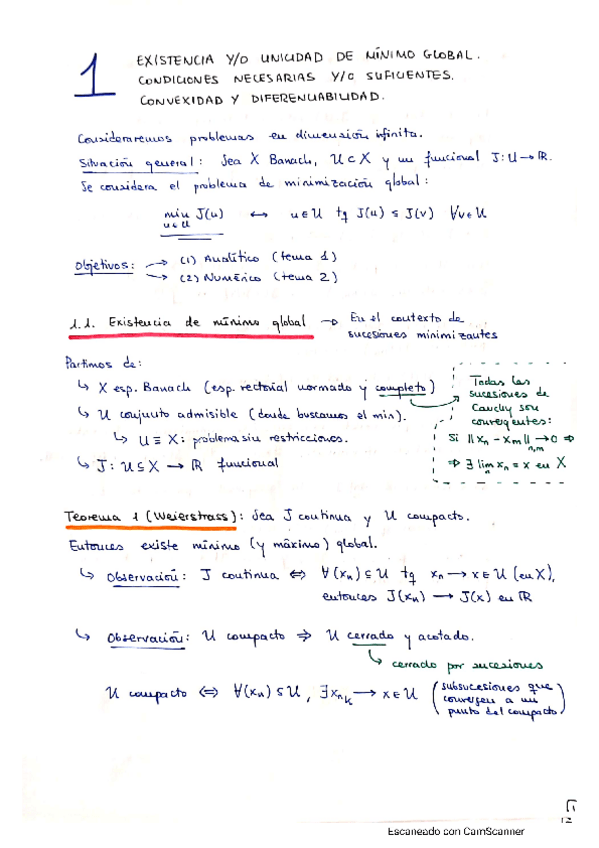 1
EXISTENCIA Y/O UNICIDAD DE MÍNIMO GLOBAL.
CONDICIONES NECESARIAS Y/O SUFICIENTES.
CONVEXIDAD Y DIFERENCIABILIDAD.
Consideraremos problemas en dimensión infinita.
Situación general: Sea X Banach, U ⊂ X y un funcional J: U → ℝ.
Se considera el problema de minimización global:
min J(u) ↔ u ∈ U tq J(u) ≤ J(v) ∀v ∈ U
u ∈ U
Objetivos: → (1) Analítico (tema 1)
→ (2) Numérico (tema 2)
1.1. Existencia de mínimo global → En el contexto de
sucesiones minimizantes
Partimos de:
↳ X esp. Banach (esp. vectorial normado y completo)
↳ U conjunto admisible (donde buscamos el min).
↳ U ≡ X: problema sin restricciones.
↳ J: U ⊆ X → ℝ funcional
Todas las
sucesiones de
Cauchy son
convergentes:
Si ‖xn - xm‖ → 0 ⇒
n,m
⇒ ∃ lim xn = x en X
n
Teorema 1 (Weierstrass): Sea J continua y U compacto.
Entonces existe mínimo (y máximo) global.
↳ Observación: J continua ⇔ ∀(xn) ⊆ U tq xn → x ∈ U (en X),
entonces J(xn) → J(x) en ℝ
↳ Observación: U compacto ⇒ U cerrado y acotado.
↳ cerrado por sucesiones
U compacto ⇔ ∀(xn) ⊆ U, ∃xnk → x ∈ U (subsucesiones que
convergen a un
punto del compacto)
12
Escaneado con CamScanner